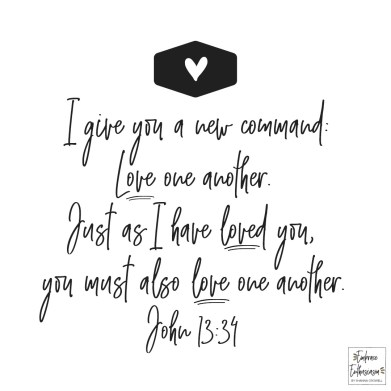 I give you a new command:
Love one another.
Just as I have loved you,
you must also love one another.
John 13:34
Embrace
Enthusiasm